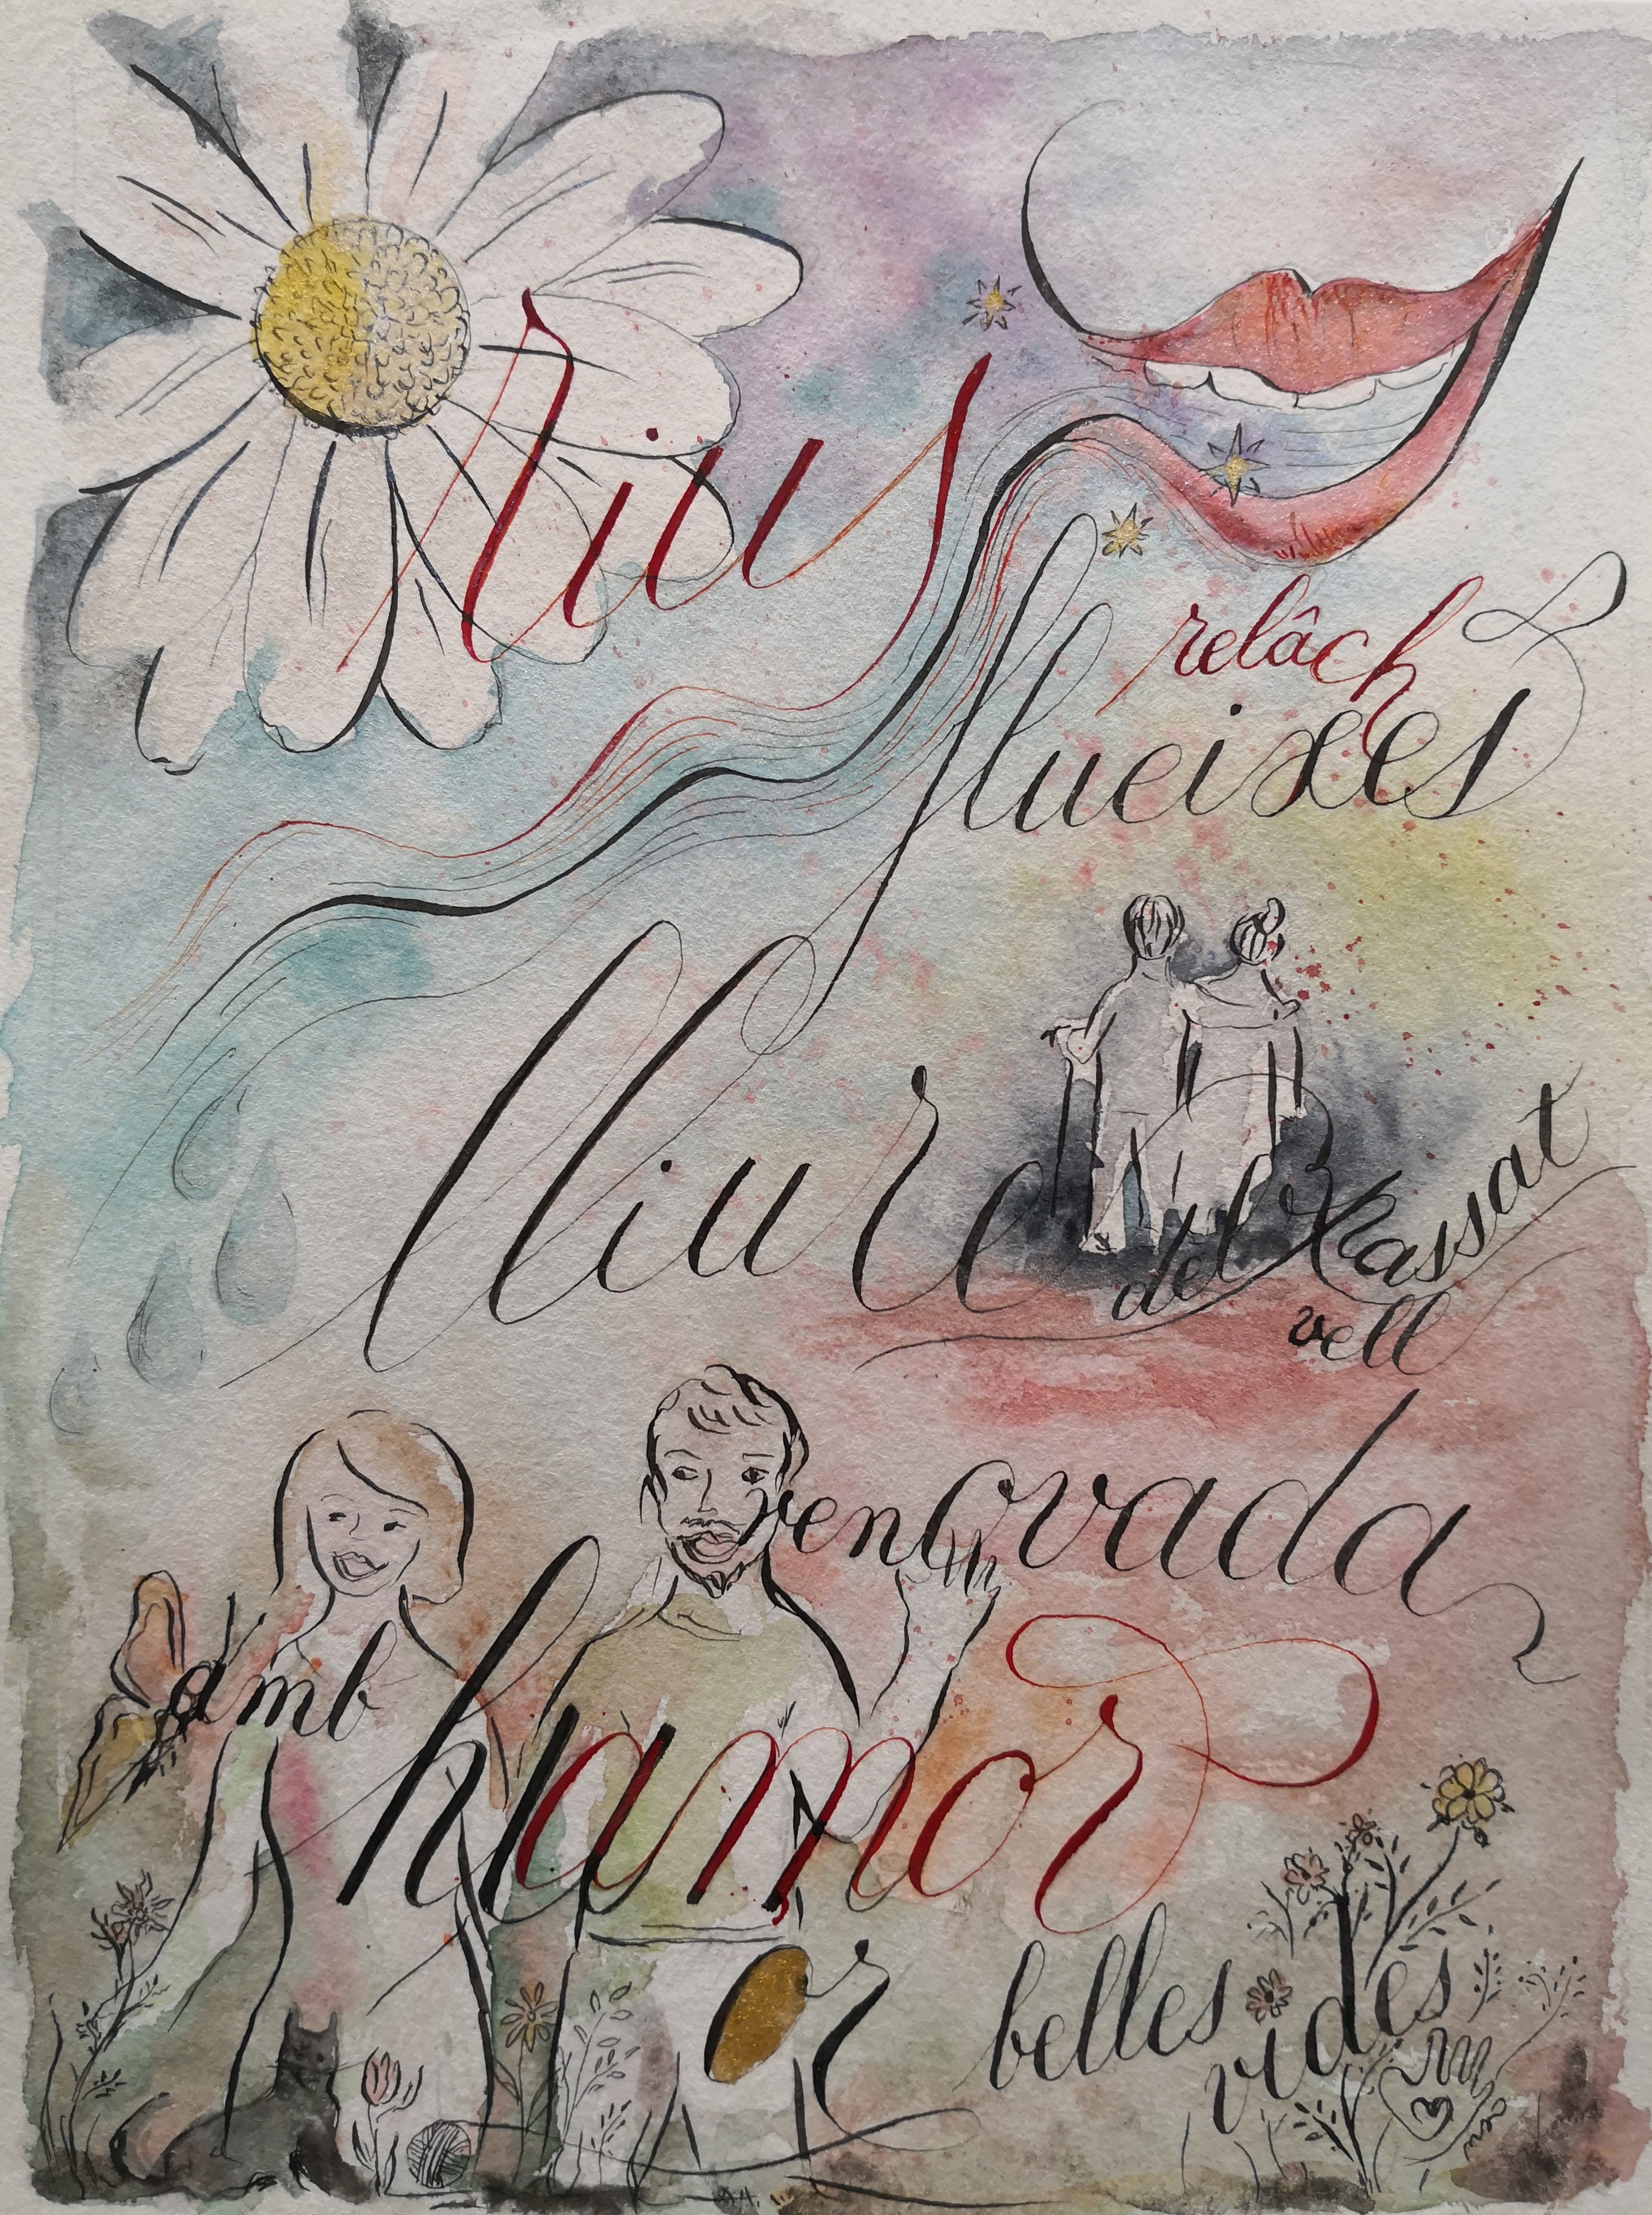 Rius
relâch
flueixes
lliure
del passat
vell
renovada
amb
humor
or
belles
vides